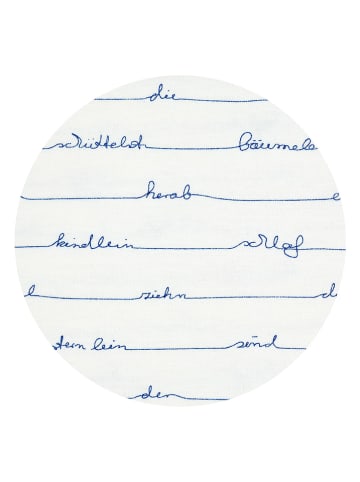 die
schüttelt bäumele
herab e
kindlein schlaf
l ziehn d
sternlein sind
den